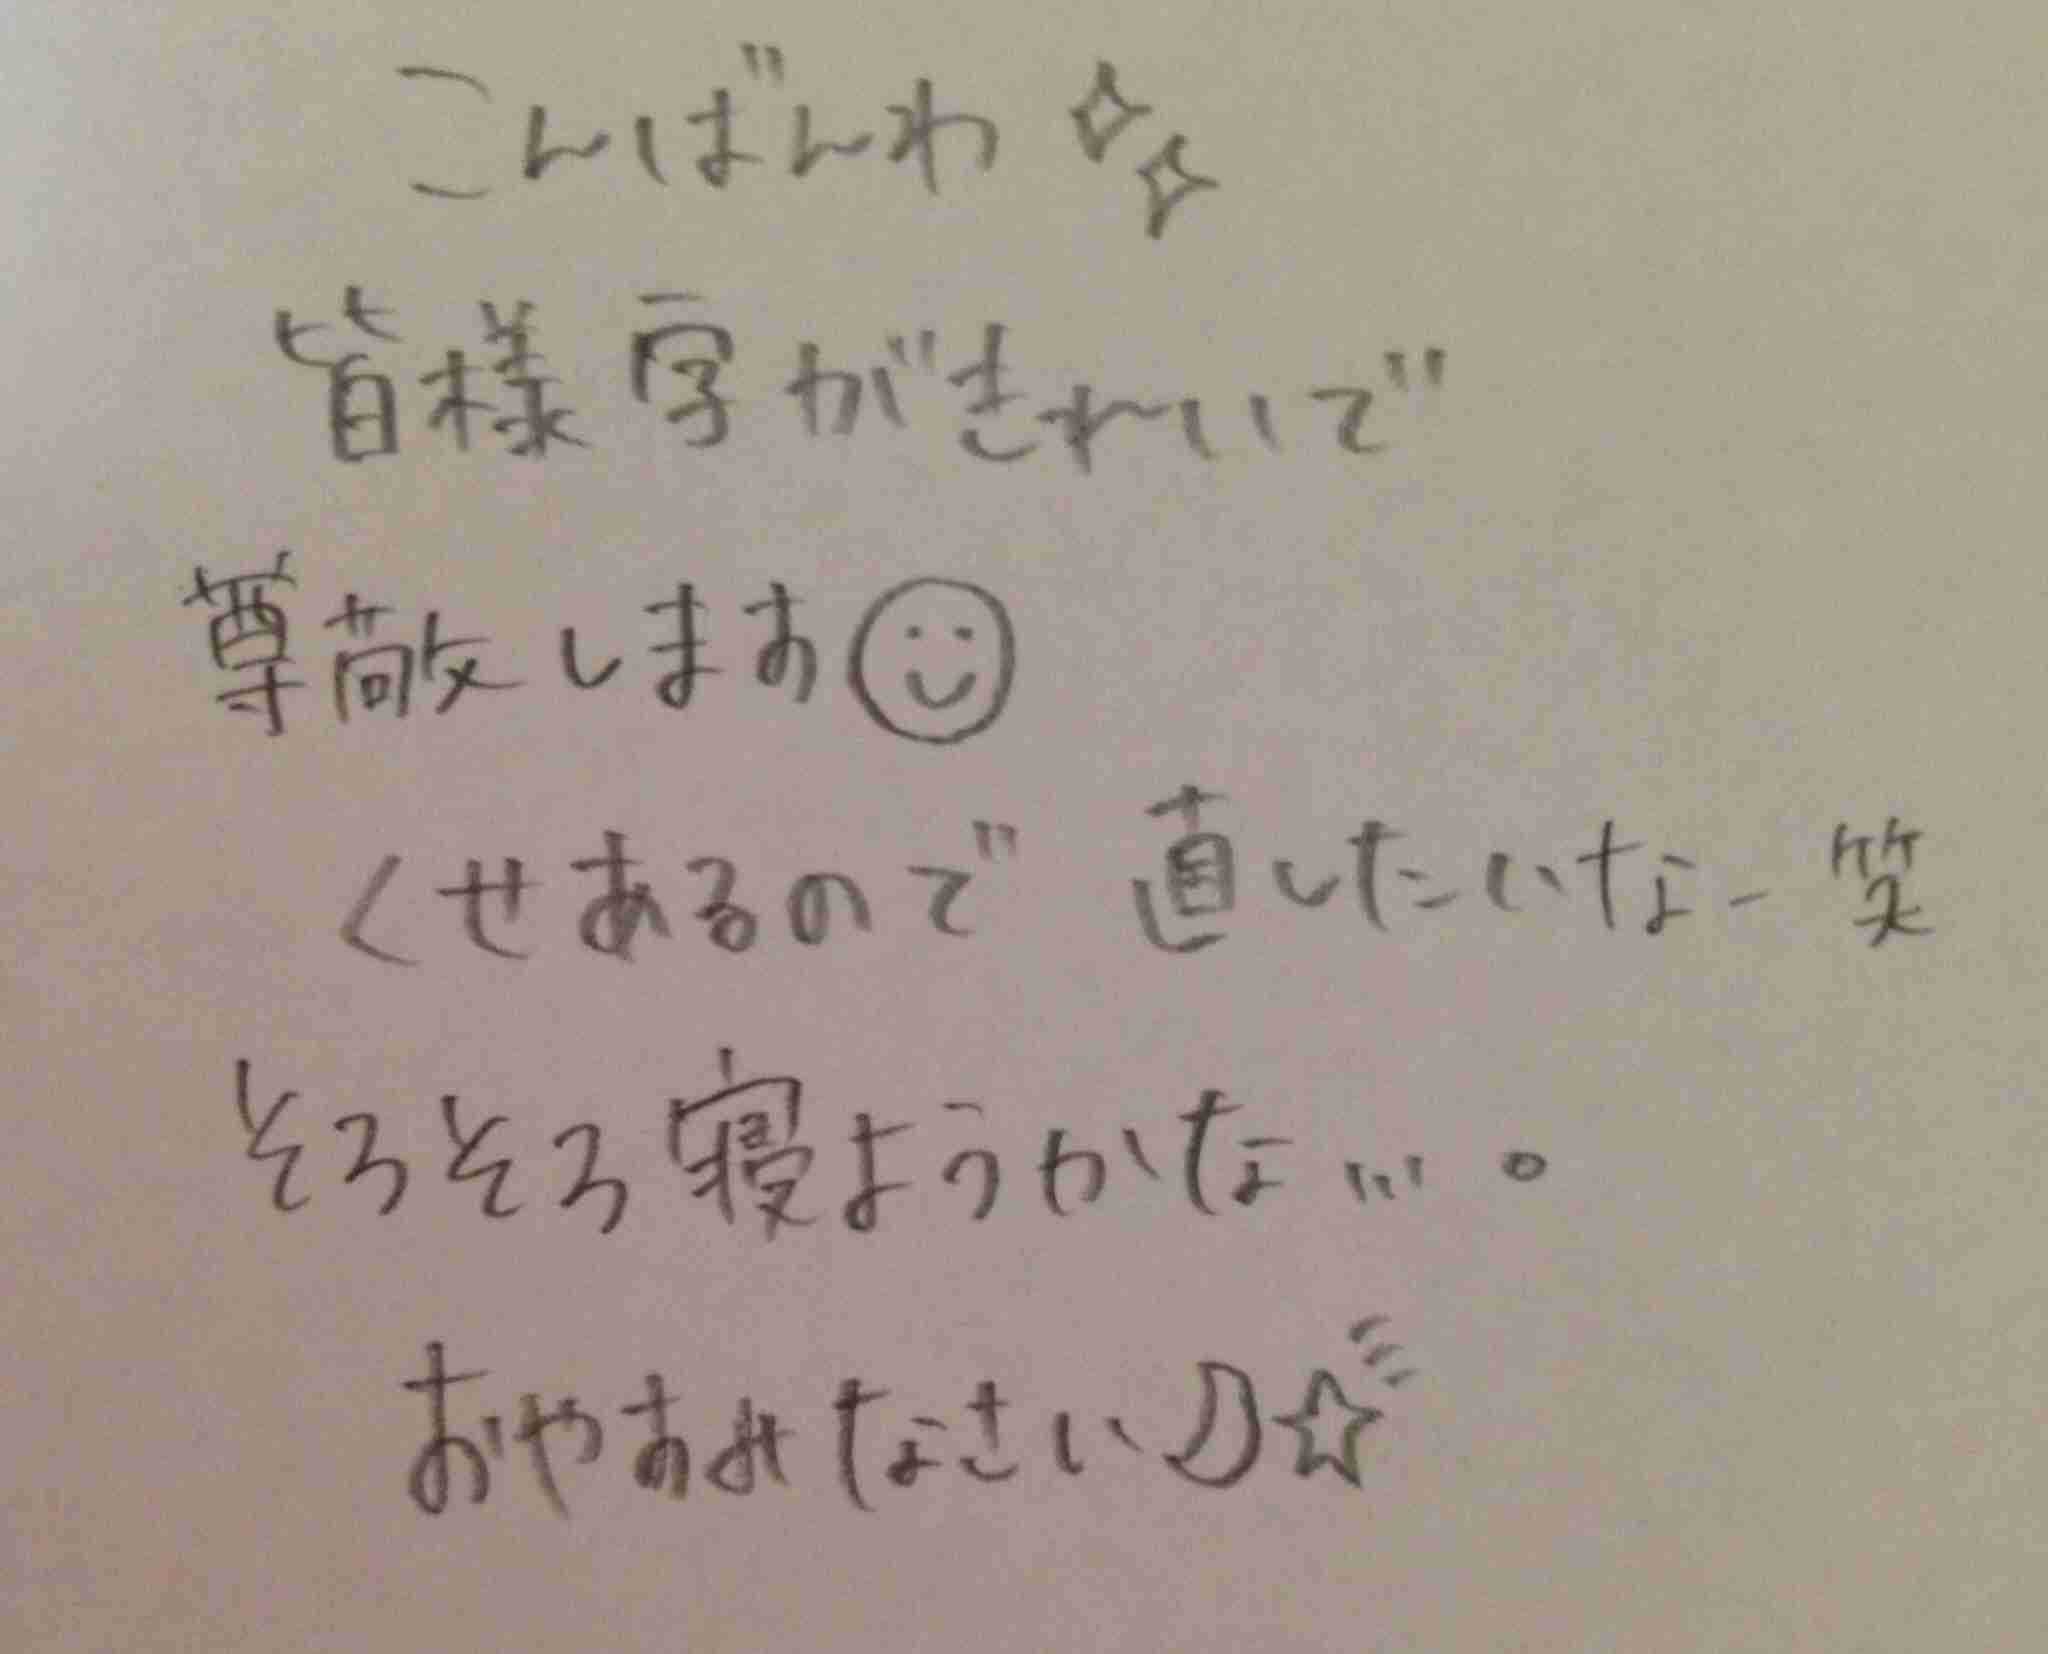 こんばんわ
皆様字がきれいで
尊敬します
くせあるので 直したいなー笑
そろそろ寝ようかな…。
おやすみなさい